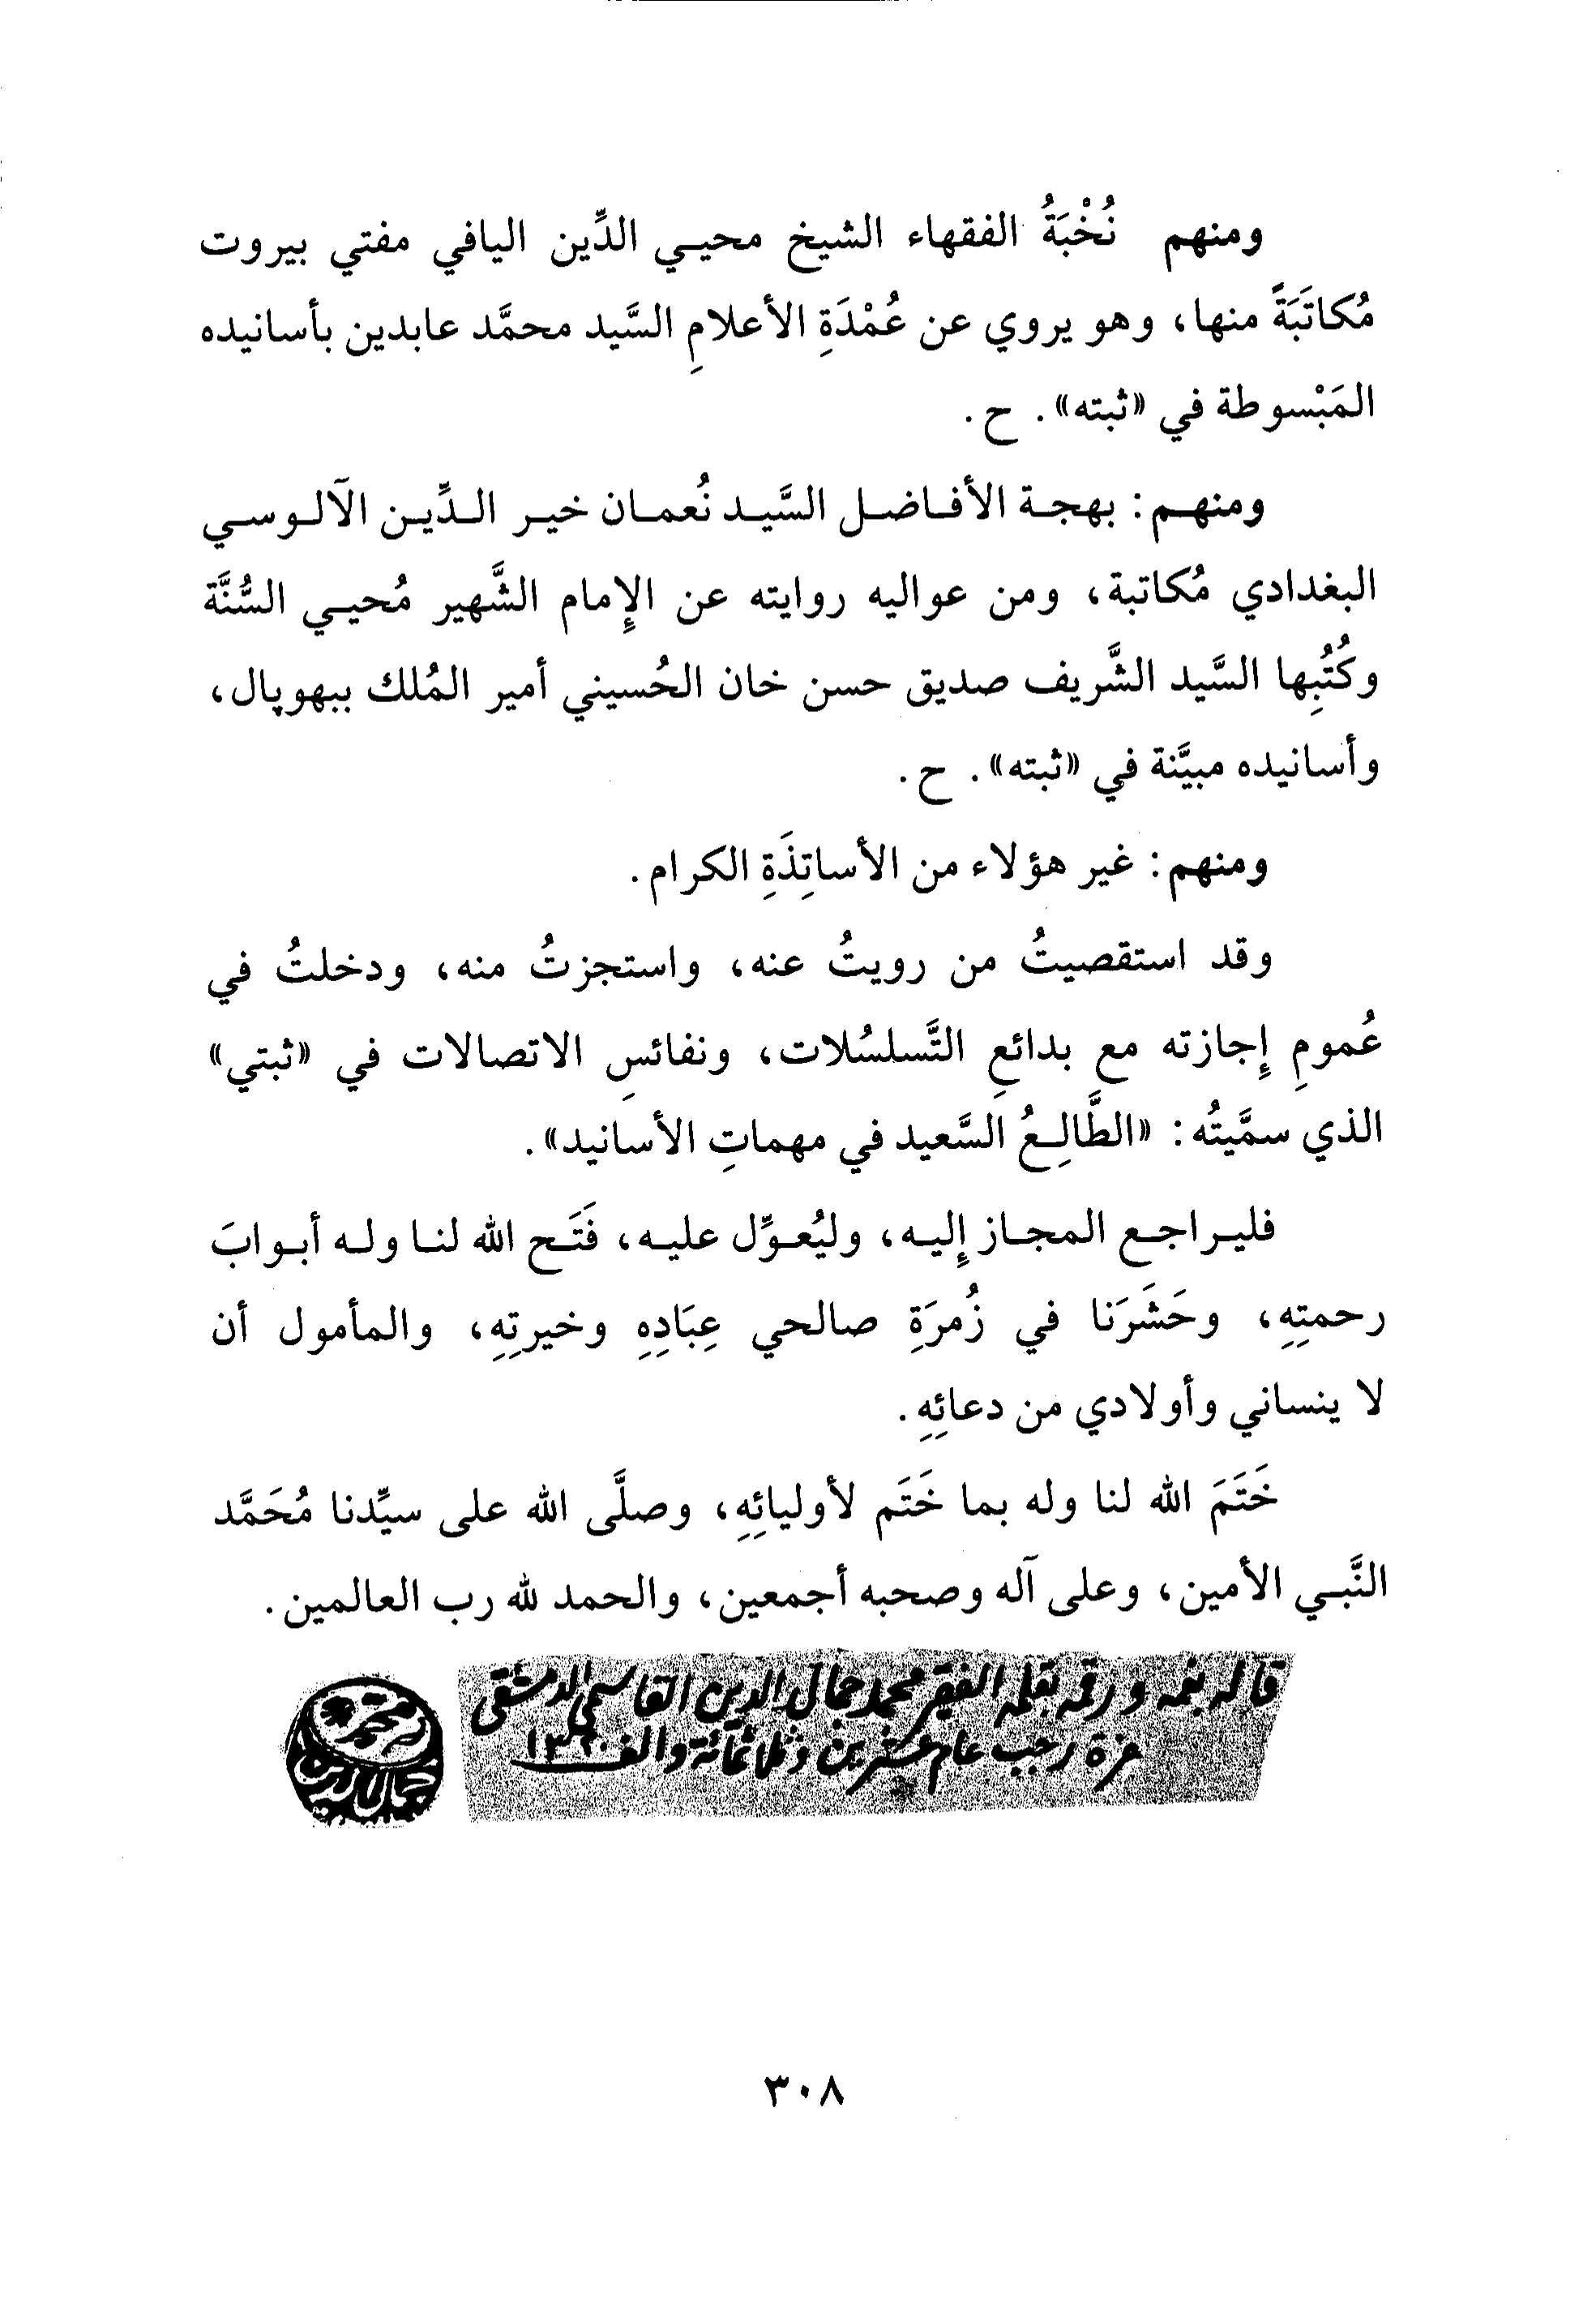 ومنهم نُخْبَةُ الفقهاء الشيخ محيي الدِّين اليافي مفتي بيروت
مُكاتَبَةً منها، وهو يروي عن عُمْدَةِ الأعلامِ السَّيد محمَّد عابدين بأسانيده
المَبْسوطة في «ثبته». ح.
ومنهم: بهجة الأفاضل السَّيد نُعمان خير الدِّين الآلوسي
البغدادي مُكاتبة، ومن عواليه روايته عن الإِمام الشَّهير مُحيي السُّنَّة
وكُتُبِها السَّيد الشَّريف صديق حسن خان الحُسيني أمير المُلك ببهوپال،
وأسانيده مبيَّنة في «ثبته». ح.
ومنهم: غير هؤلاء من الأساتِذَةِ الكرام.
وقد استقصيتُ من رويتُ عنه، واستجزتُ منه، ودخلتُ في
عُمومِ إِجازته مع بدائعِ التَّسلسُلات، ونفائسِ الاتصالات في «ثبتي»
الذي سمَّيتُه: «الطَّالِعُ السَّعيد في مهماتِ الأسانيد».
فليراجع المجاز إِليه، وليُعوِّل عليه، فَتَح الله لنا وله أبوابَ
رحمتِهِ، وحَشَرَنا في زُمرَةِ صالحي عِبَادِهِ وخيرتِهِ، والمأمول أن
لا ينساني وأولادي من دعائِهِ.
خَتَمَ الله لنا وله بما خَتَم لأوليائِهِ، وصلَّى الله على سيِّدنا مُحَمَّد
النَّبي الأمين، وعلى آله وصحبه أجمعين، والحمد لله رب العالمين.
قاله بفمه ورقمه بقلمه الفقير محمد جمال الدين القاسمي الدمشقي
غرة رجب عام عشرين وثلاثمائة والف ١٣٢٠
محمد
جمال الدين
٣٠٨